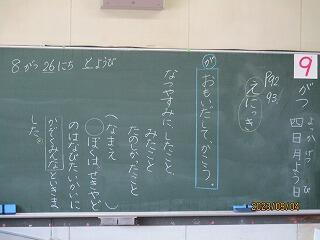 9
がつ
四日月よう日
よっか げつ び
P92
93
えにっき
が
おもいだしてかこう。
なつやすみに したこと、
みたこと
たのしかったこと
8がつ26にち どようび
(なまえ )
ぼくは、せきやど
のはなびたいかいに
かぞくみんなといきま
した。
2023/09/04